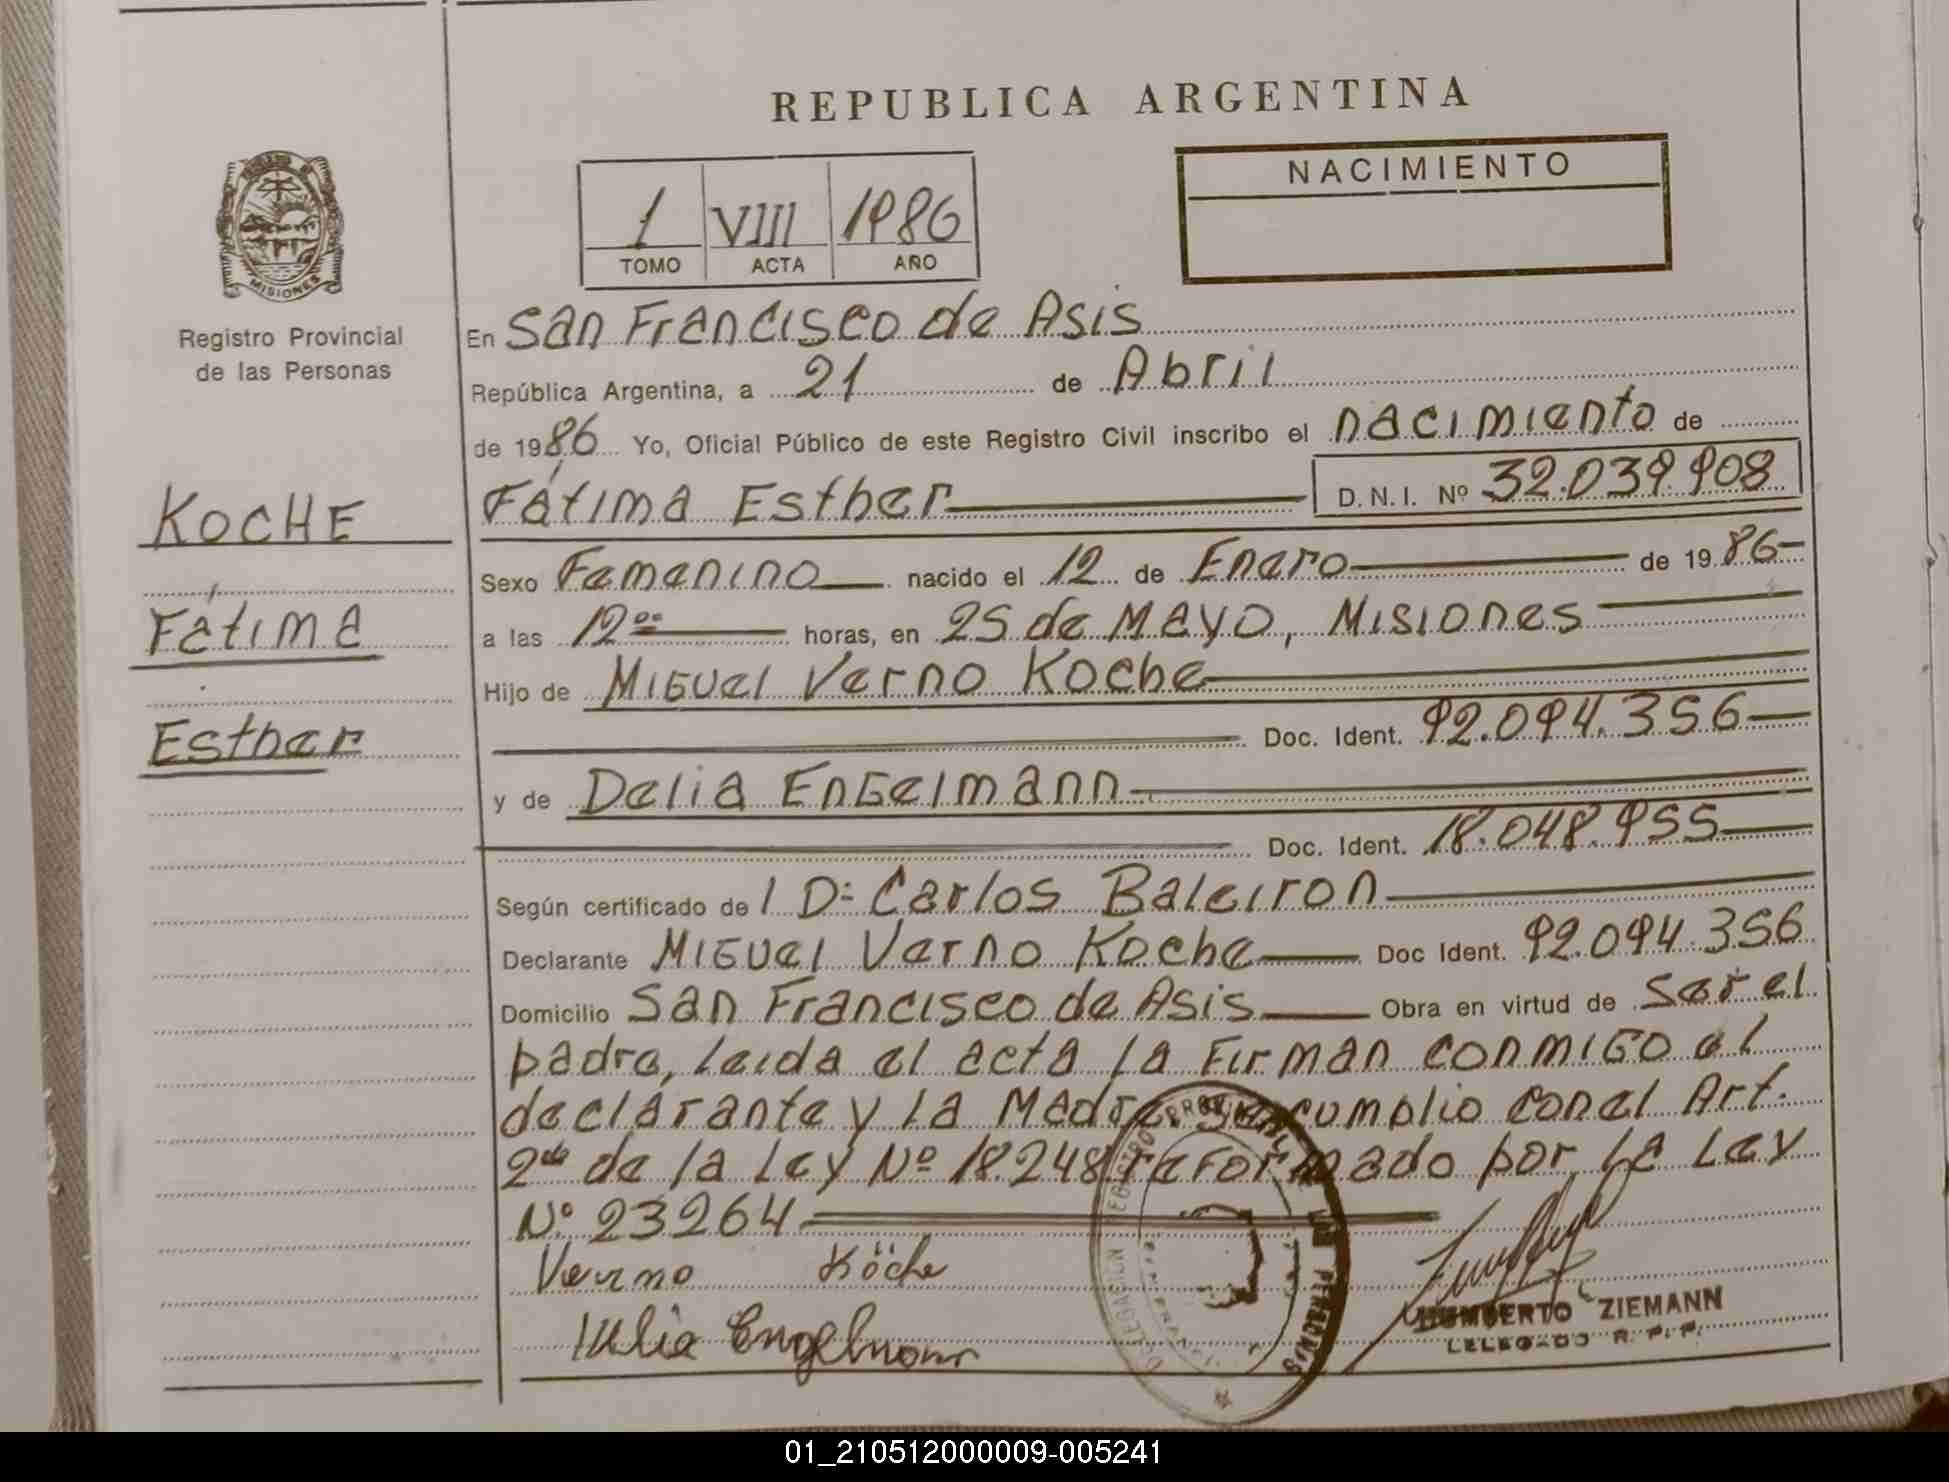 REPUBLICA ARGENTINA
NACIMIENTO
1 VIII 1986
TOMO ACTA AÑO
MISIONES
Registro Provincial
de las Personas
KOCHE
Fátima
Esther
En San Francisco de Asis
República Argentina, a 21 de Abril
de 1986 Yo, Oficial Público de este Registro Civil inscribo el nacimiento de
Fátima Esther D.N.I. Nº 32.039.908
Sexo Femenino nacido el 12 de Enero de 1986
a las 12 00 horas, en 25 de Mayo, Misiones
Hijo de Miguel Verno Koche
Doc. Ident. 92.094.356
y de Delia Engelmann
Doc. Ident. 18.048.955
Según certificado de l Dr Carlos Baleiron
Declarante Miguel Verno Koche Doc Ident. 92.094.356
Domicilio San Francisco de Asis Obra en virtud de ser el
padre, leida el acta la Firman conmigo el
declarante y la Madre. Se cumplio con el Art.
2do de la Ley Nº 18.248 reformado por la Ley
Nº 23264
Verno Köche
Engelmann
HUMBERTO ZIEMANN
DELEGADO R. P. P.
DELEGACION REGISTRO PROVINCIAL DE LAS PERSONAS
01_210512000009-005241